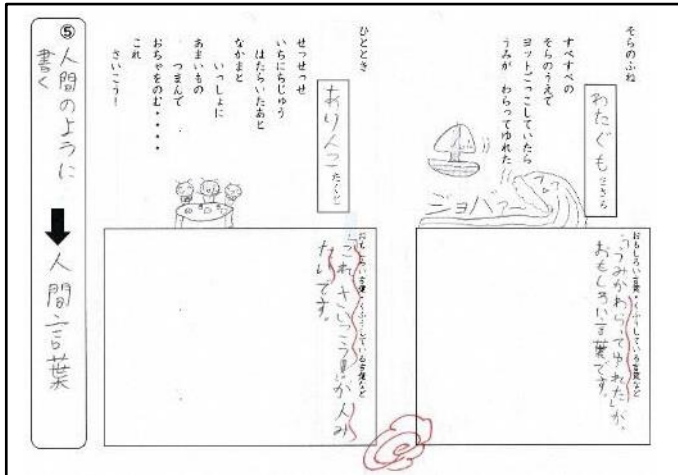 そらのふね
わたぐも ささら
すべすべの
そらのうえで
ヨットごっこしていたら
うみが わらってゆれた
ジョバァー
おもしろい言葉・くふうしている言葉など
「うみがわらってゆれた」が、
おもしろい言葉です。
ひととき
ありんこ たくと
せっせっせ
いちにちじゅう
はたらいたあと
なかまと
いっしょに
あまいもの
つまんで
おちゃをのむ・・・・
これ
さいこう!
おもしろい言葉・くふうしている言葉など
「これ さいっこう!」が人み
たいです。
⑤
人間のように
書く
人間言葉